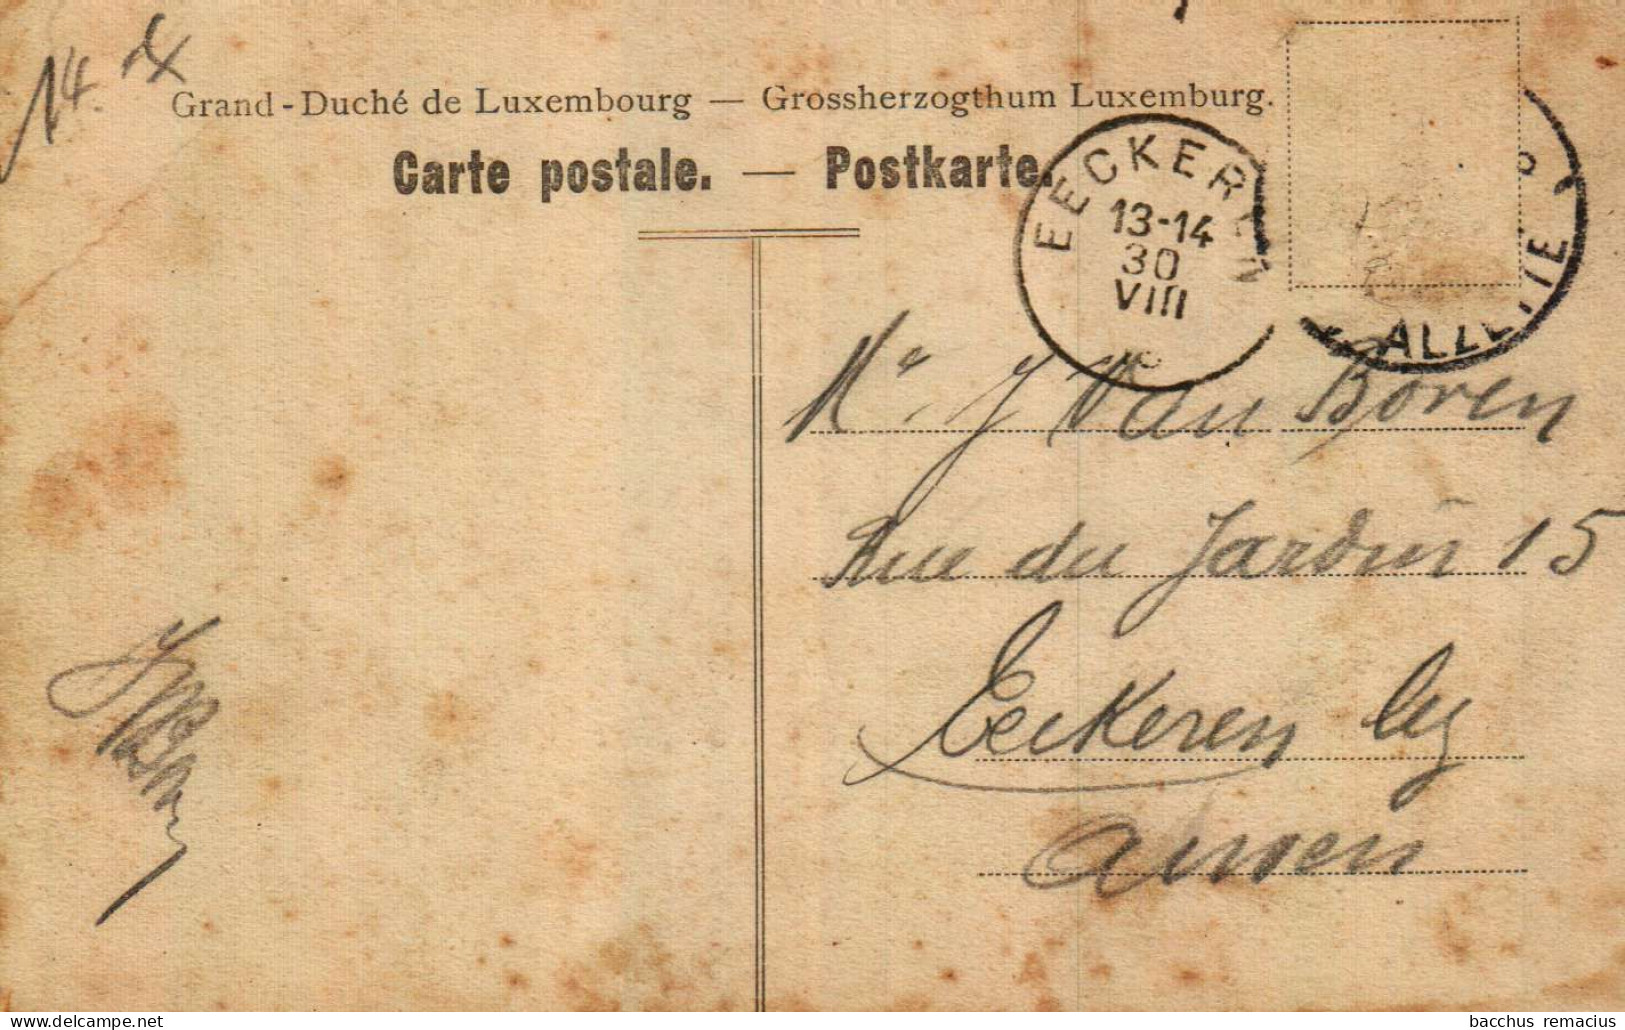 14.
Grand-Duché de Luxembourg — Grossherzogthum Luxemburg.
Carte postale. — Postkarte.
EECKEREN
13-14
30
VIII
ALL
Mr J Van Boren
Rue du Jardin 15
Eeckeren by
Anven
bacchus remacius